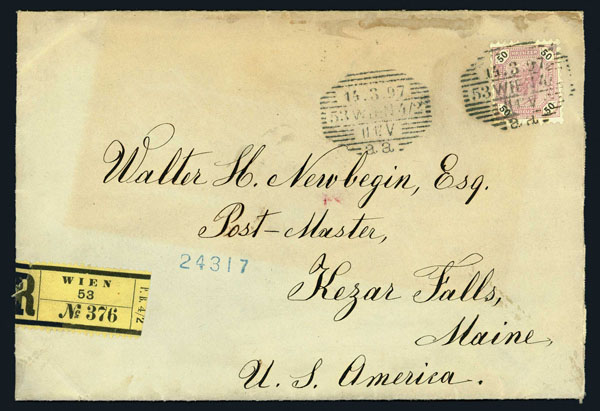 50 50
50 50
14.3.97
53 WIEN 4/2
11 V
aa
14.3.97
53 WIEN 4/
11 V
aa
Walter H. Newbegin, Esq.
Post-Master,
24317
Kezar Falls,
Maine,
U. S. America.
R
WIEN
53
№ 376
P. B. 4/2